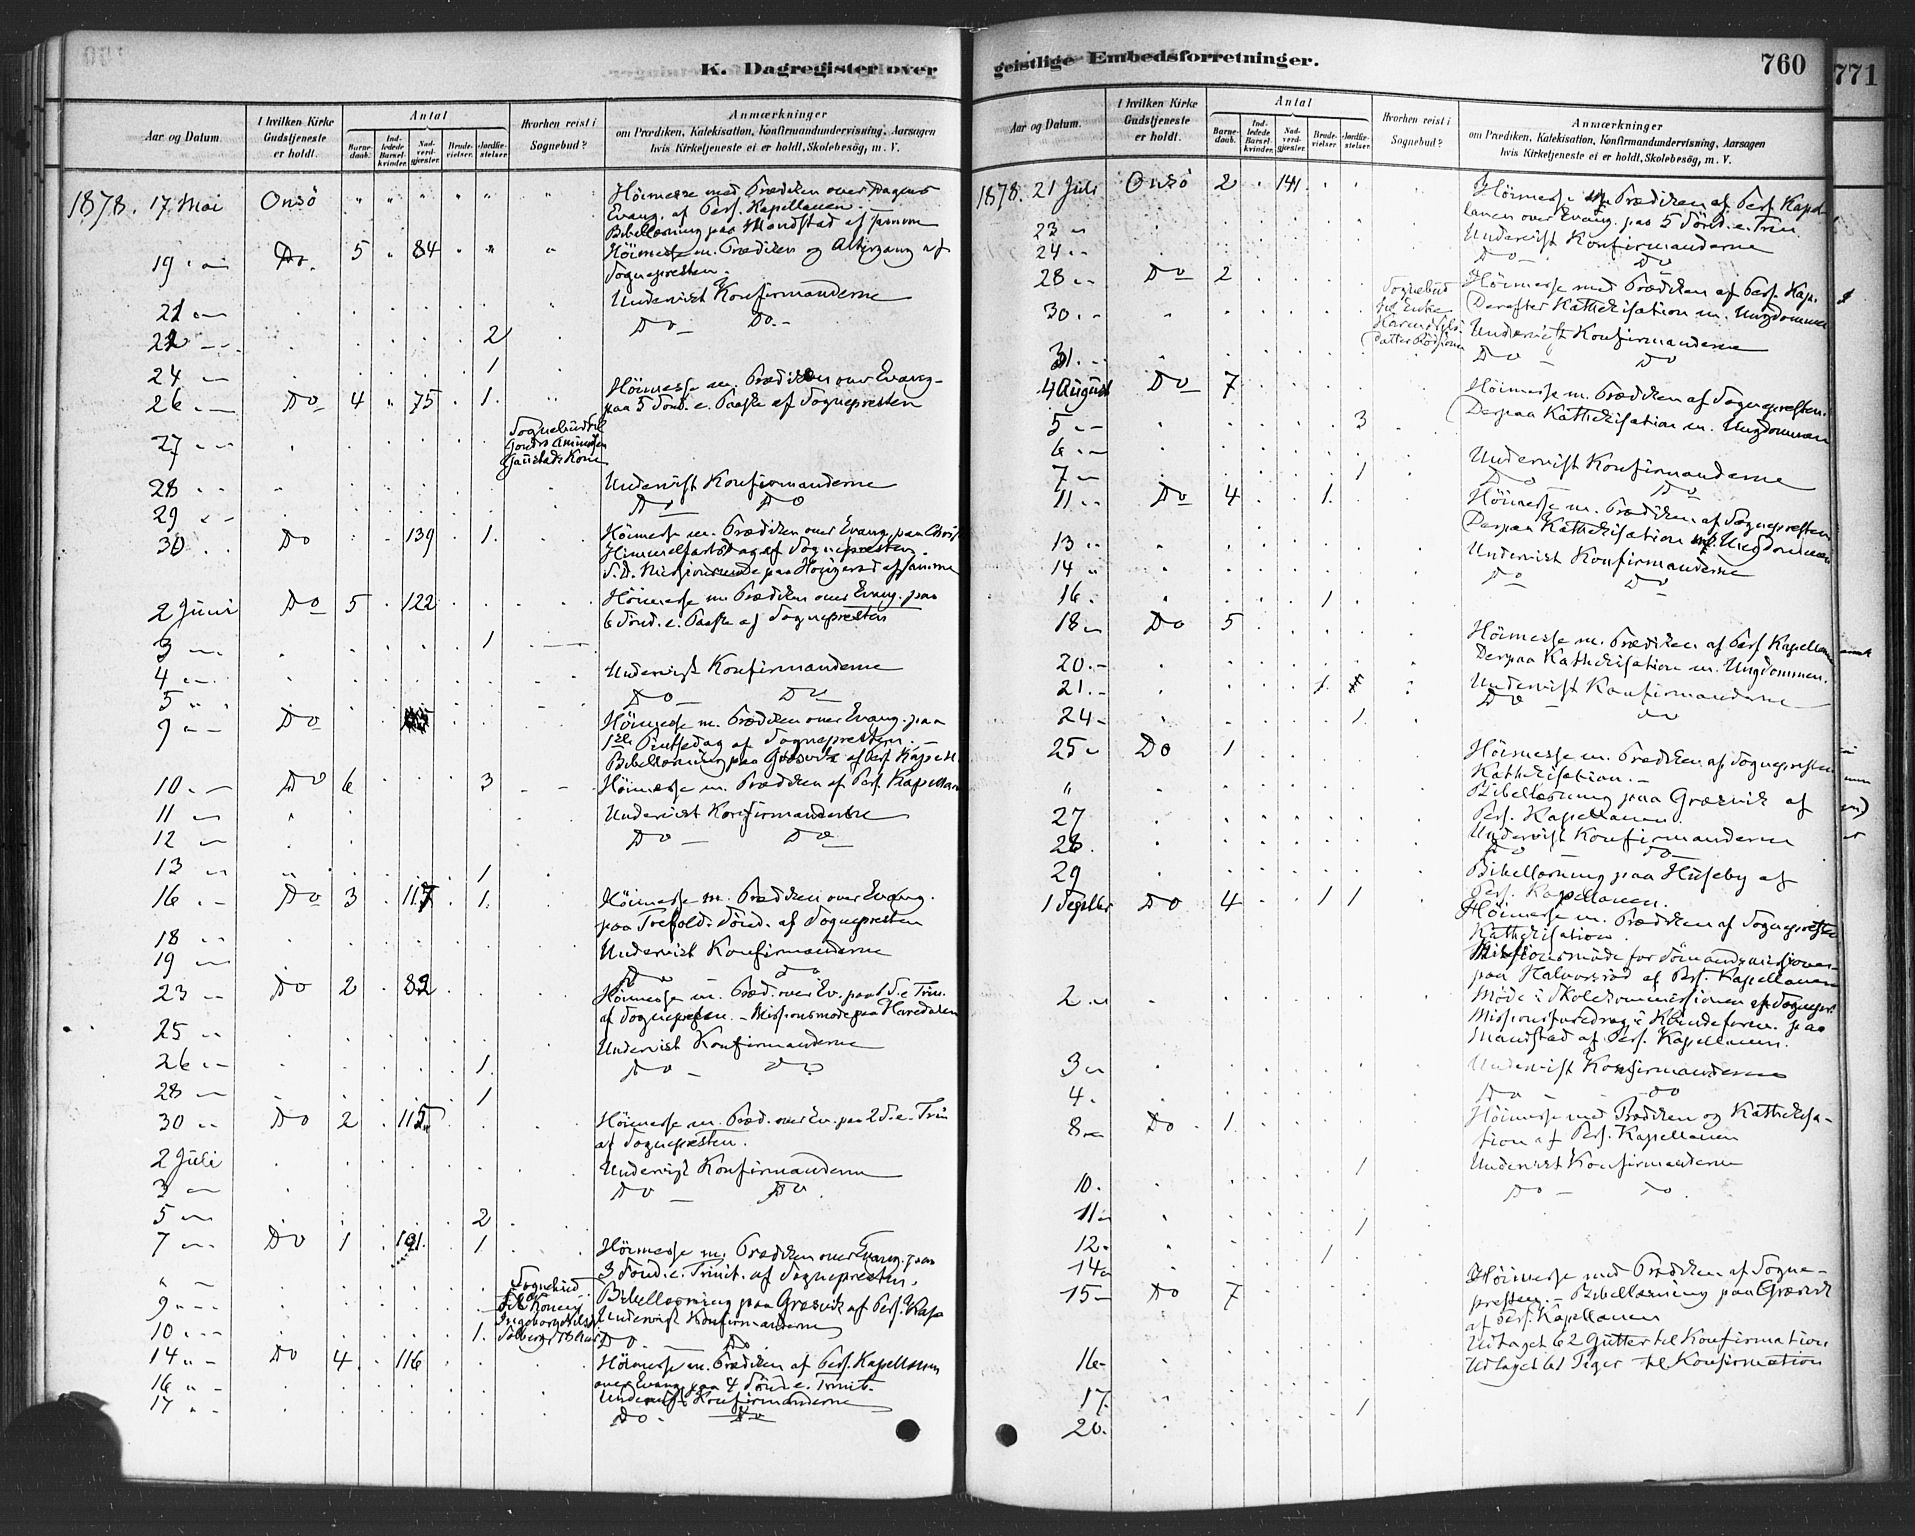 K. Dagregister over
Aar og Datum.
I hvilken Kirke Gudstjeneste er holdt.
Antal
Barnedaab.
Indledede Barselkvinder.
Nadverdgjester.
Brudevielser.
Jordfæstelser.
Hvorhen reist i Sognebud?
Anmærkninger
om Prædiken, Katekisation, Konfirmandundervisning, Aarsagen
hvis Kirketjeneste ei er holdt, Skolebesøg, m. V.
1878. 17 Mai Onsö " " " " " " Höimesse med Prædiken over Dagens
Evang. af Pers. Kapellanen.
Bibellæsning paa Mandstad af samme
19 " Do. 5 " 84 " " " Höimesse m. Prædiken og Altergang af
Sognepresten.
21 " Undervist Konfirmanderne
22 " 2 Do Do
24 " 1
26 " Do 4 " 75 . 1. Höimesse m. Prædiken over Evang.
paa 5 Sönd. e. Paaske af Sognepresten
27 " Sognebud til
28 " Undervist Konfirmanderne
29 " Do Do
30 " Do 139 1. Höimesse m. Prædiken over Evang. paa Christi
Himmelfartsdag af Sognepresten.
S. D. Missionsmöde paa af samme
2 Juni Do 5 . 122 Höimesse m. Prædiken over Evang. paa
6 Sönd. e. Paaske af Sognepresten
3 " 1
4 " Undervist Konfirmanderne
5 " Do Do
9 " Do Höimesse m. Prædiken over Evang. paa
1ste Pintsedag af Sognepresten. —
Bibellæsning paa af Pers. Kapell.
10 " Do 6 3 Höimesse m. Prædiken af Pers. Kapellanen
11 " Undervist Konfirmanderne
12 " Do Do
13 " 1
16 " Do 3 . 117 . 1. Höimesse m. Prædiken over Evang.
paa Trefold. Sönd. af Sognepresten
18 " Undervist Konfirmanderne
19 " Do Do
23 " Do 2 . 82 Höimesse m. Præd. over Ev. paa 1 S. e. Trin.
af Sognepresten. — Missionsmöde paa
25 " Undervist Konfirmanderne
26 " 1. Do Do
28 " 1
30 " Do 2 . 115 Höimesse m. Præd. over Ev. paa 2 S. e. Trin
af Sognepresten.
2 Juli Undervist Konfirmanderne
3 " Do Do.
5 " 2
7 " Do 1 . 101 . 1 Höimesse m. Prædiken over Evang. paa
3 Sönd. e. Trinit. af Sognepresten.
" " Sognebud Bibellæsning paa Græsvik af Pers. Kap.
9 " Undervist Konfirmanderne
10 " 1. Do Do
14 " Do 4. . 116 Höimesse m. Prædiken af Pers. Kapellanen
over Evang. paa 4 Sönd. e. Trinit.
16 " Undervist Konfirmanderne
17 " Do Do
geistlige Embedsforretninger.
760
771
Aar og Datum.
I hvilken Kirke Gudstjeneste er holdt.
Antal
Barnedaab.
Indledede Barselkvinder.
Nadverdgjester.
Brudevielser.
Jordfæstelser.
Hvorhen reist i Sognebud?
Anmærkninger
om Prædiken, Katekisation, Konfirmandundervisning, Aarsagen
hvis Kirketjeneste ei er holdt, Skolebesøg, m. V.
1878. 21 Juli Onsö 2 . 141 Höimesse m. Prædiken af Pers. Kapel-
lanen over Evang. paa 5 Sönd. e. Trin.
23 " Undervist Konfirmanderne
24 " Do Do
28 " Do 2 Höimesse med Prædiken af Pers. Kap.
Derefter Kathekisation m. Ungdommen
30 " Sognebud Undervist Konfirmanderne
31 " Do Do
4 August Do 7 Höimesse m. Prædiken af Sognepresten.
Derpaa Kathekisation m. Ungdommen
5 " 3
6 " Undervist Konfirmanderne
7 " 1 Do Do
11 " Do 4 . . 1. Höimesse m. Prædiken af Sognepresten
Derpaa Kathekisation m. Ungdommen
13 " Undervist Konfirmanderne
14 " Do Do
16. 1
18 " Do 5 Höimesse m. Prædiken af Pers. Kapellanen
Derpaa Kathekisation m. Ungdommen.
20. " Undervist Konfirmanderne
21. " 1. Do Do
24 " 1.
25 " Do 1 Höimesse m. Prædiken af Sognepresten
Kathekisation. —
" Bibellæsning paa Græsvik af
Pers. Kapellanen.
27 Undervist Konfirmanderne
28. Do Do
29 Bibellæsning paa Huseby af
Pers. Kapellanen.
1 Septbr Do 4 . . 1 1 Höimesse m. Prædiken af Sognepresten
Kathekisation.
Missionsmöde for Sömandsmissionen
paa Halvorsröd af Pers. Kapellanen
2 " Möde i Skolekommissionen af Sognepr.
Missionsforedrag i Kvindeforen. paa
Mandstad af Pers. Kapellanen.
3 " Undervist Konfirmanderne
4. Do Do
8 " Do . 1. Höimesse med Prædiken og Kathekisa-
tion af Pers. Kapellanen
10. 1 Undervist Konfirmanderne
11 " Do Do.
12. 1
14 " 1
15 " Do 7 Höimesse med Prædiken af Sogne-
presten. — Bibellæsning paa Græsvik
af Pers. Kapellanen
16 " Udtaget 62 Gutter til Konfirmation
17. Udtaget 61 Piger til Konfirmation
20. 1